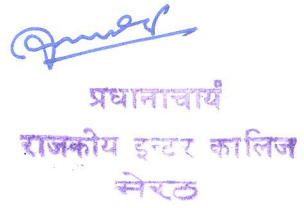 प्रधानाचार्य
राजकीय इन्टर कालिज
मेरठ